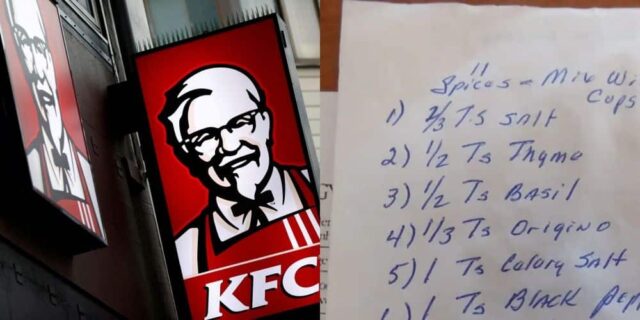 KFC
11
Spices = Mix Wi
Cups
1) 2/3 Ts Salt
2) 1/2 Ts Thyme
3) 1/2 Ts Basil
4) 1/3 Ts Origino
5) 1 Ts Celary Salt
1 Ts Black Pep